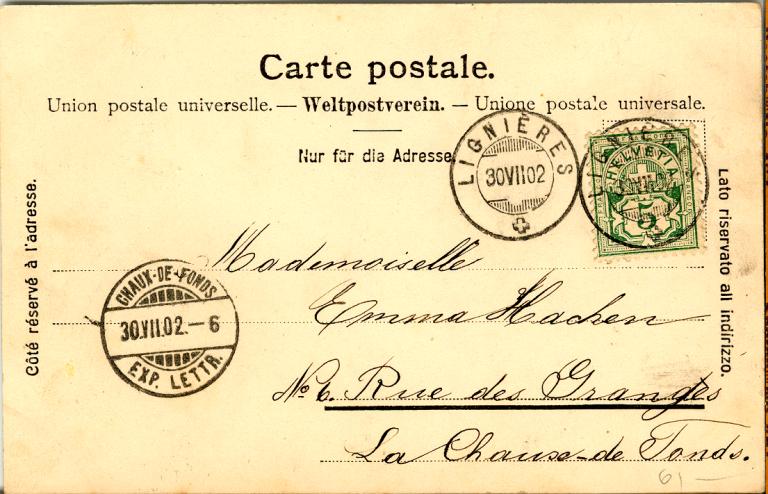 Carte postale.
Union postale universelle. — Weltpostverein. — Unione postale universale.
Nur für die Adresse.
Côté réservé à l'adresse.
Lato riservato all indirizzo.
LIGNIÈRES
30VII02
HELVETIA
5
CHAUX-DE-FONDS
30.VII.02.–6
EXP. LETTR.
Mademoiselle
Emma Hachen
No 6. Rue des Granges
La Chaux-de Fonds.
61 —